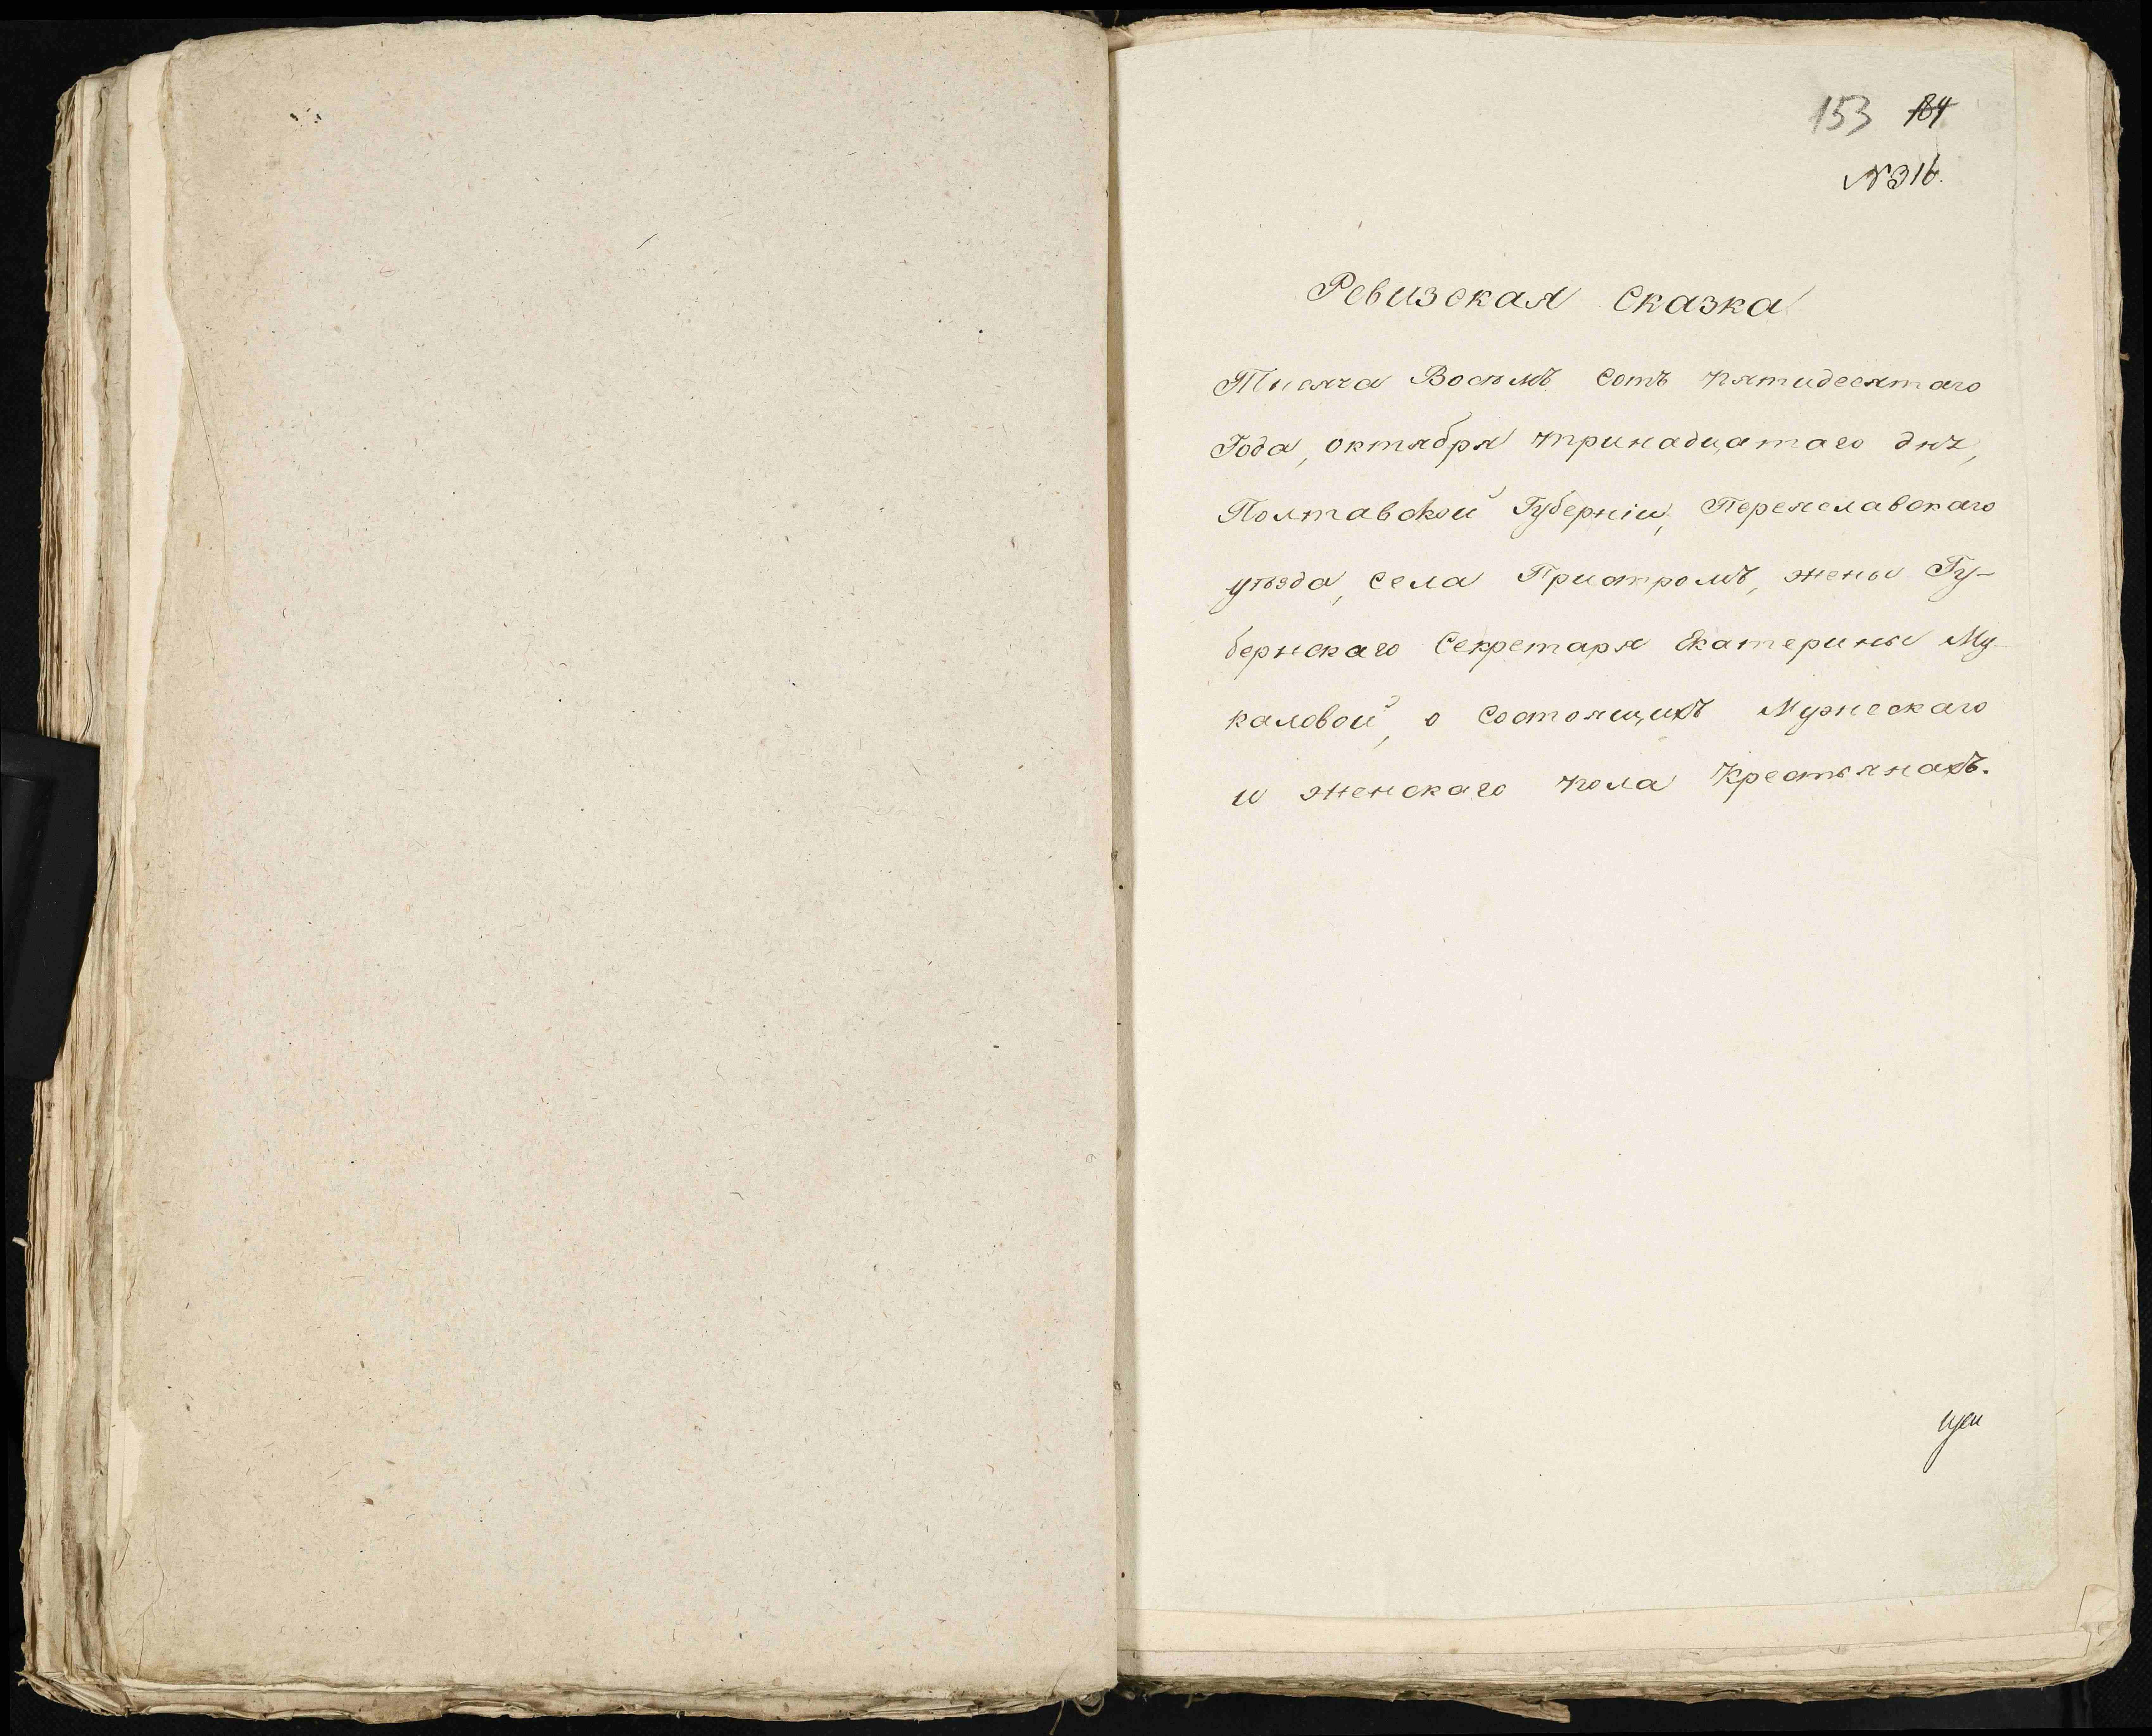 153 184
№316.
Ревизская Сказка
Тисяча Восемъ Сотъ пятидесятаго
Года, октября тринадцатаго дня,
Полтавской Губерніи, Переяславскаго
уѣзда, села Пристромъ, жены Гу-
бернскаго Секретаря Екатерины Му-
каловой, о Состоящихъ Мужескаго
и женскаго пола Крестьянахъ.